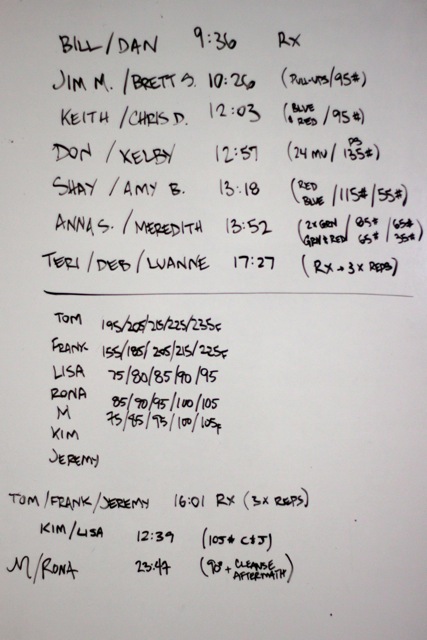 BILL/DAN 9:36 RX
JIM M./BRETT S. 10:26 (PULL-UPS/95#)
KEITH/CHRIS D. 12:03 (BLUE & RED/95#)
DON/KELBY 12:57 (24 MU/135#)
SHAY/AMY B. 13:18 (RED BLUE/115#/55#)
ANNA S./MEREDITH 13:52 (2x GRN GRN & RED/85# 65#/65# 35#)
TERI/DEB/LUANNE 17:27 (RX → 3x REPS)
TOM 195/205/215/225/235F
FRANK 155/185/205/215/225F
LISA 75/80/85/90/95
RONA 85/90/95/100/105
M 75/85/95/100/105F
KIM
JEREMY
TOM/FRANK/JEREMY 16:01 RX (3x REPS)
KIM/LISA 12:39 (105# C&J)
M/RONA 23:44 (+ CLEANSE AFTERMATH)